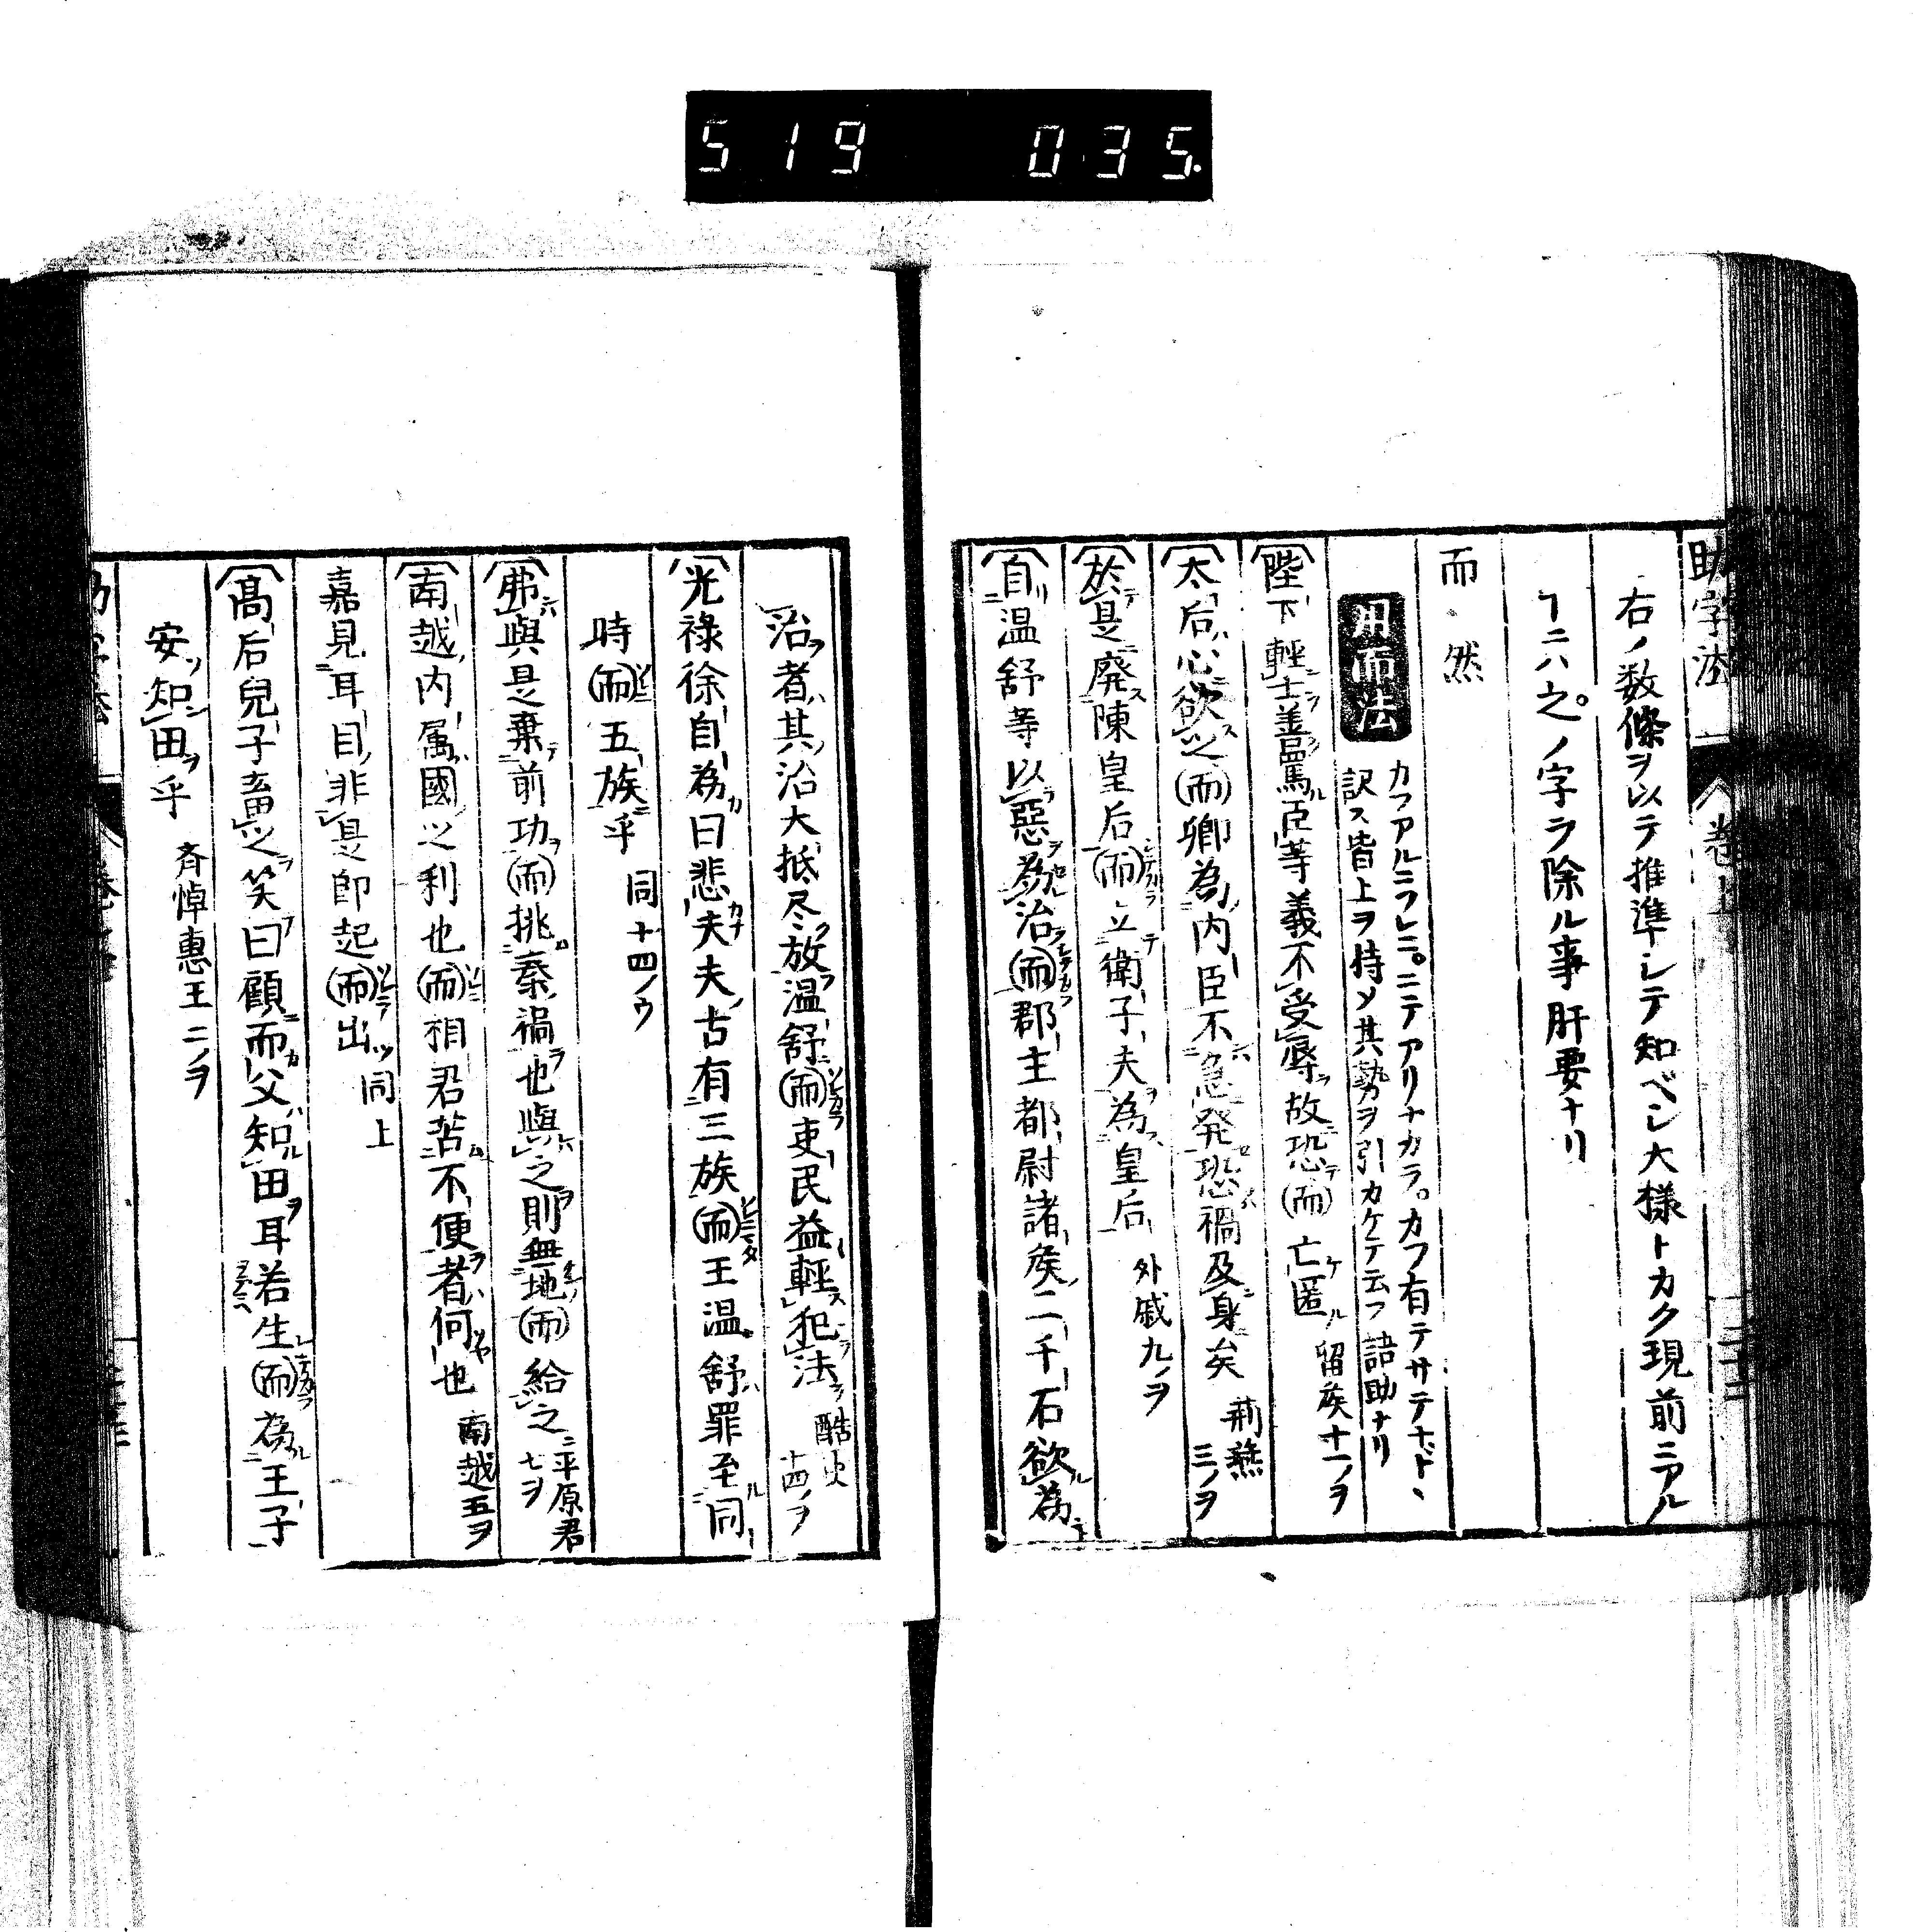 519 035
助字法 卷上
右ノ数條ヲ以テ推準シテ知ベシ大樣トカク現前ニアル
ヿニハ之ノ字ヲ除ル事肝要ナリ
而 然
用而法
カフアルニフレニ。ニテアリナカラ。カフ有テサテナドヽ
訳ス皆上ヲ持ソ其勢ヲ引カケテ云フ語助ナリ
陛下輕士善罵臣等義不受辱故恐而亡匿 留矦十一ノヲ
太后心欲之而卿為内臣不急発恐禍及身矣 荊燕三ノヲ
於是廃陳皇后而立衛子夫為皇后 外戚九ノヲ
自温舒等以惡為治而郡主都尉諸矦二千石欲為
治者其治大抵尽放温舒而吏民益輕犯法 酷吏十四ノヲ
光祿徐自為曰悲夫夫古有三族而王温舒罪至同
時而五族乎 同十四ノウ
弗與是棄前功而挑秦禍也與之則無地而給之 平原君七ヲ
南越内属國之利也而相君苦不便者何也 南越五ヲ
嘉見耳目非是即起而出 同上
高后兒子畜之笑曰顧而父知田耳若生而為王子
安知田乎 斉悼惠王二ノヲ